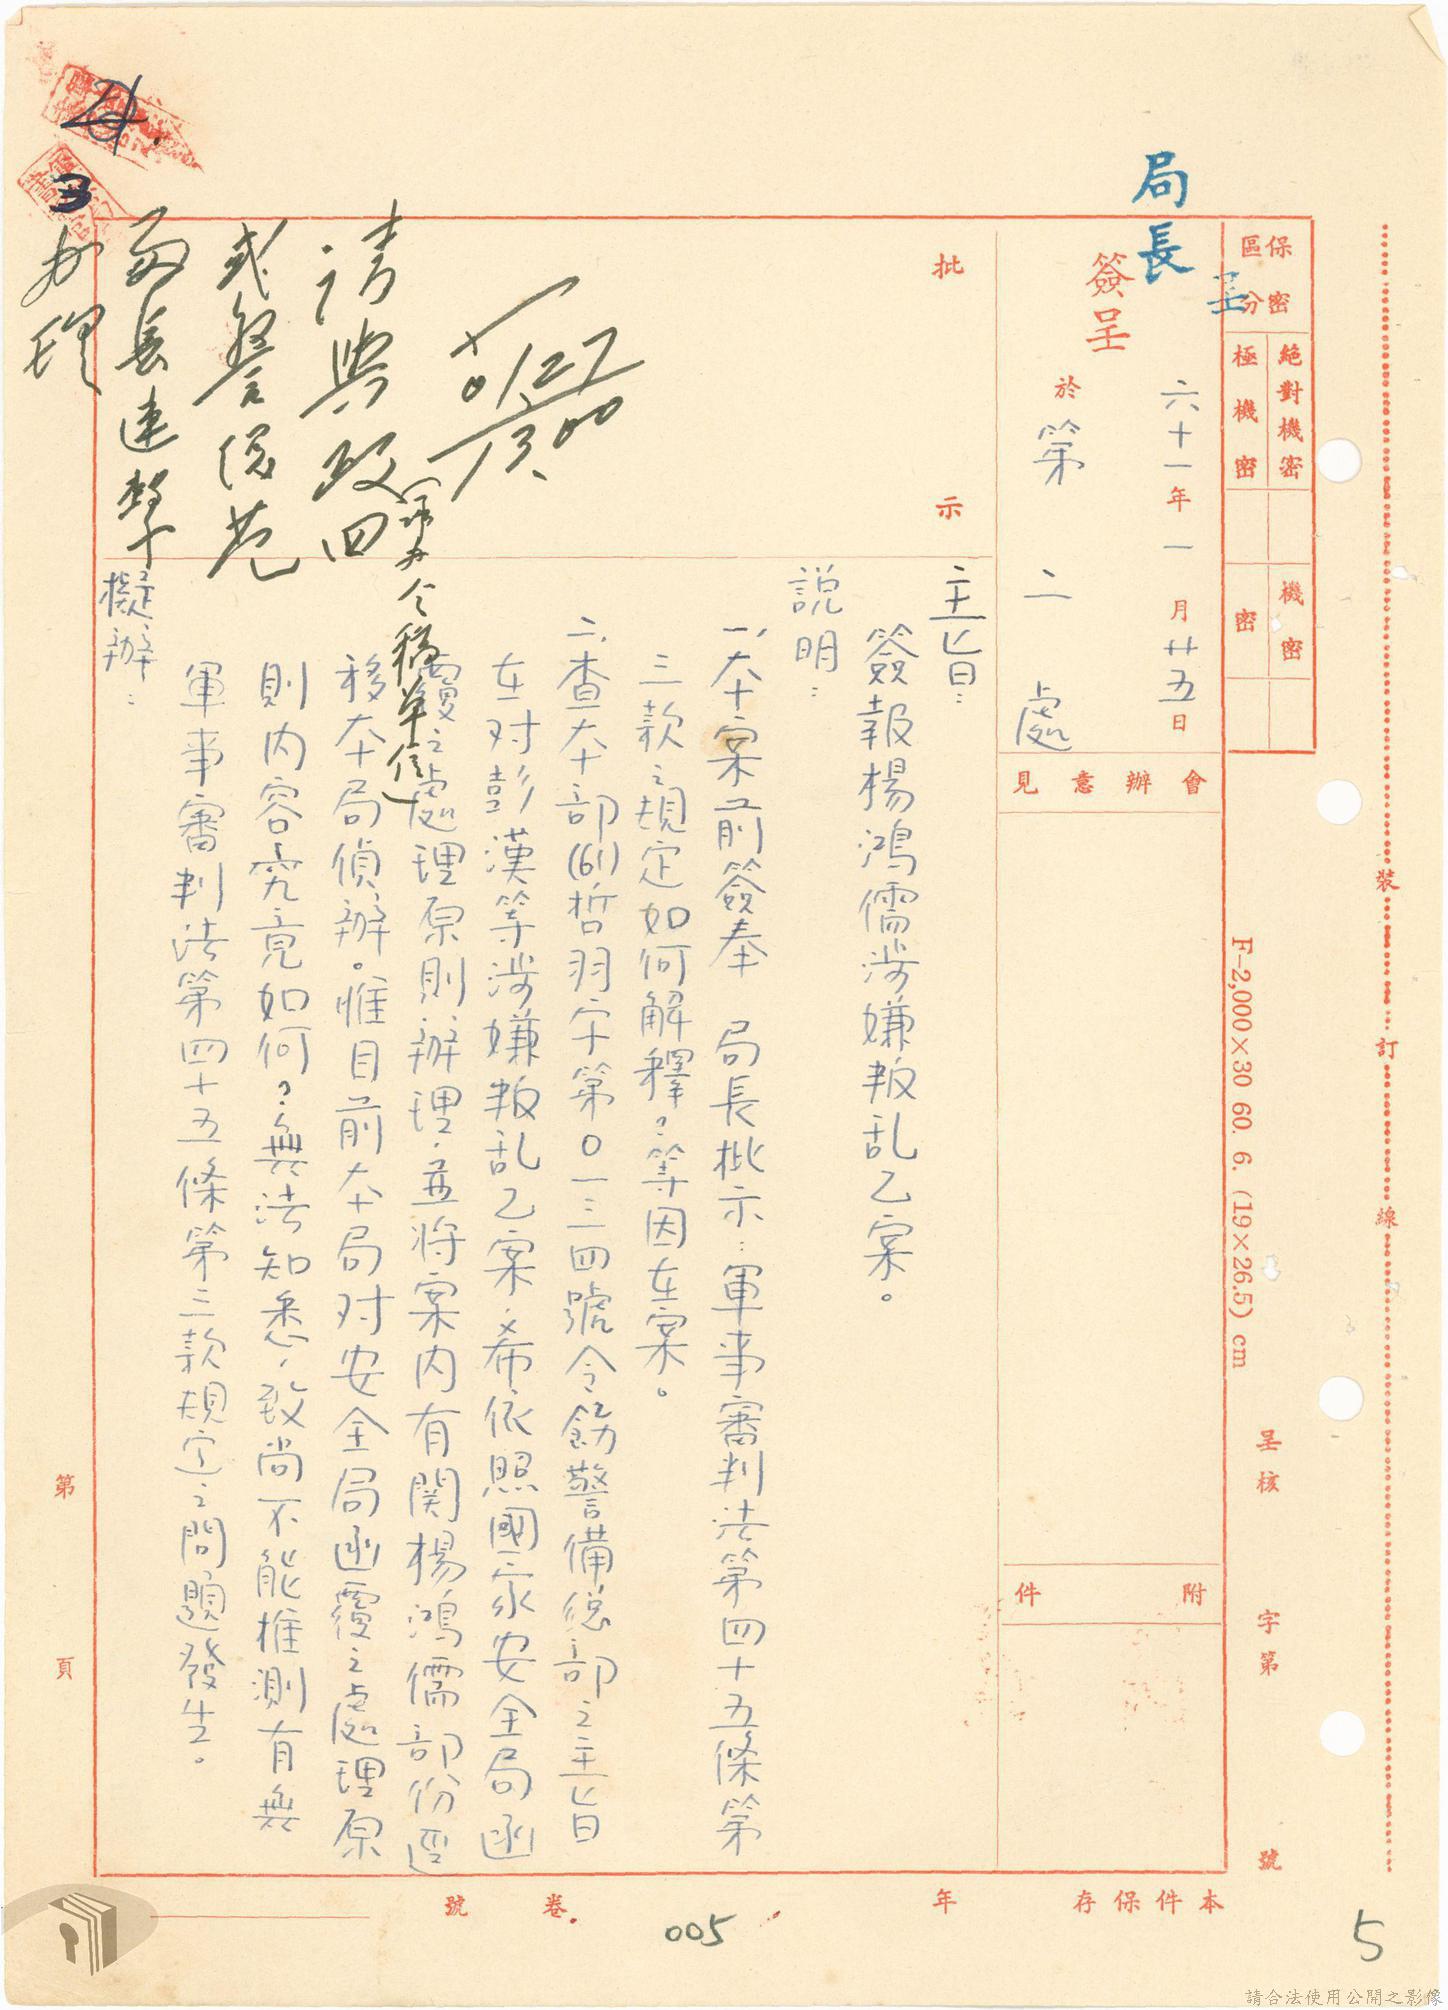 裝訂線
F-2,000×30 60. 6. (19×26.5) cm
呈核
字第
號
保密
區分
絕對機密
極機密
機密
密
局長
呈
簽呈
六十一年一月廿五日
於第二處
會辦意見
附件
批示
主旨：
簽報楊鴻儒涉嫌叛乱乙案。
說明：
一、本案前簽奉 局長批示：軍事審判法第四十五條第
三款之規定如何解釋？等因在案。
二、查本部(61)哲羽字第0一三四號令飭警備総部之主旨
在对彭漢等涉嫌叛乱乙案，希依照國家安全局函
覆之處理原則辦理，並將案内有関楊鴻儒部份逕
移本局偵辦。惟目前本局对安全局函覆之處理原
則内容究竟如何？無法知悉，致尚不能推測有無
軍事審判法第四十五條第三款規定之問題發生。
擬辦：
1/27
1300
请與政四
（
令稿單位）
或警總范
兩長連擊
办理
第
頁
本件保存
年
卷
號
005
5
請合法使用公開之影像